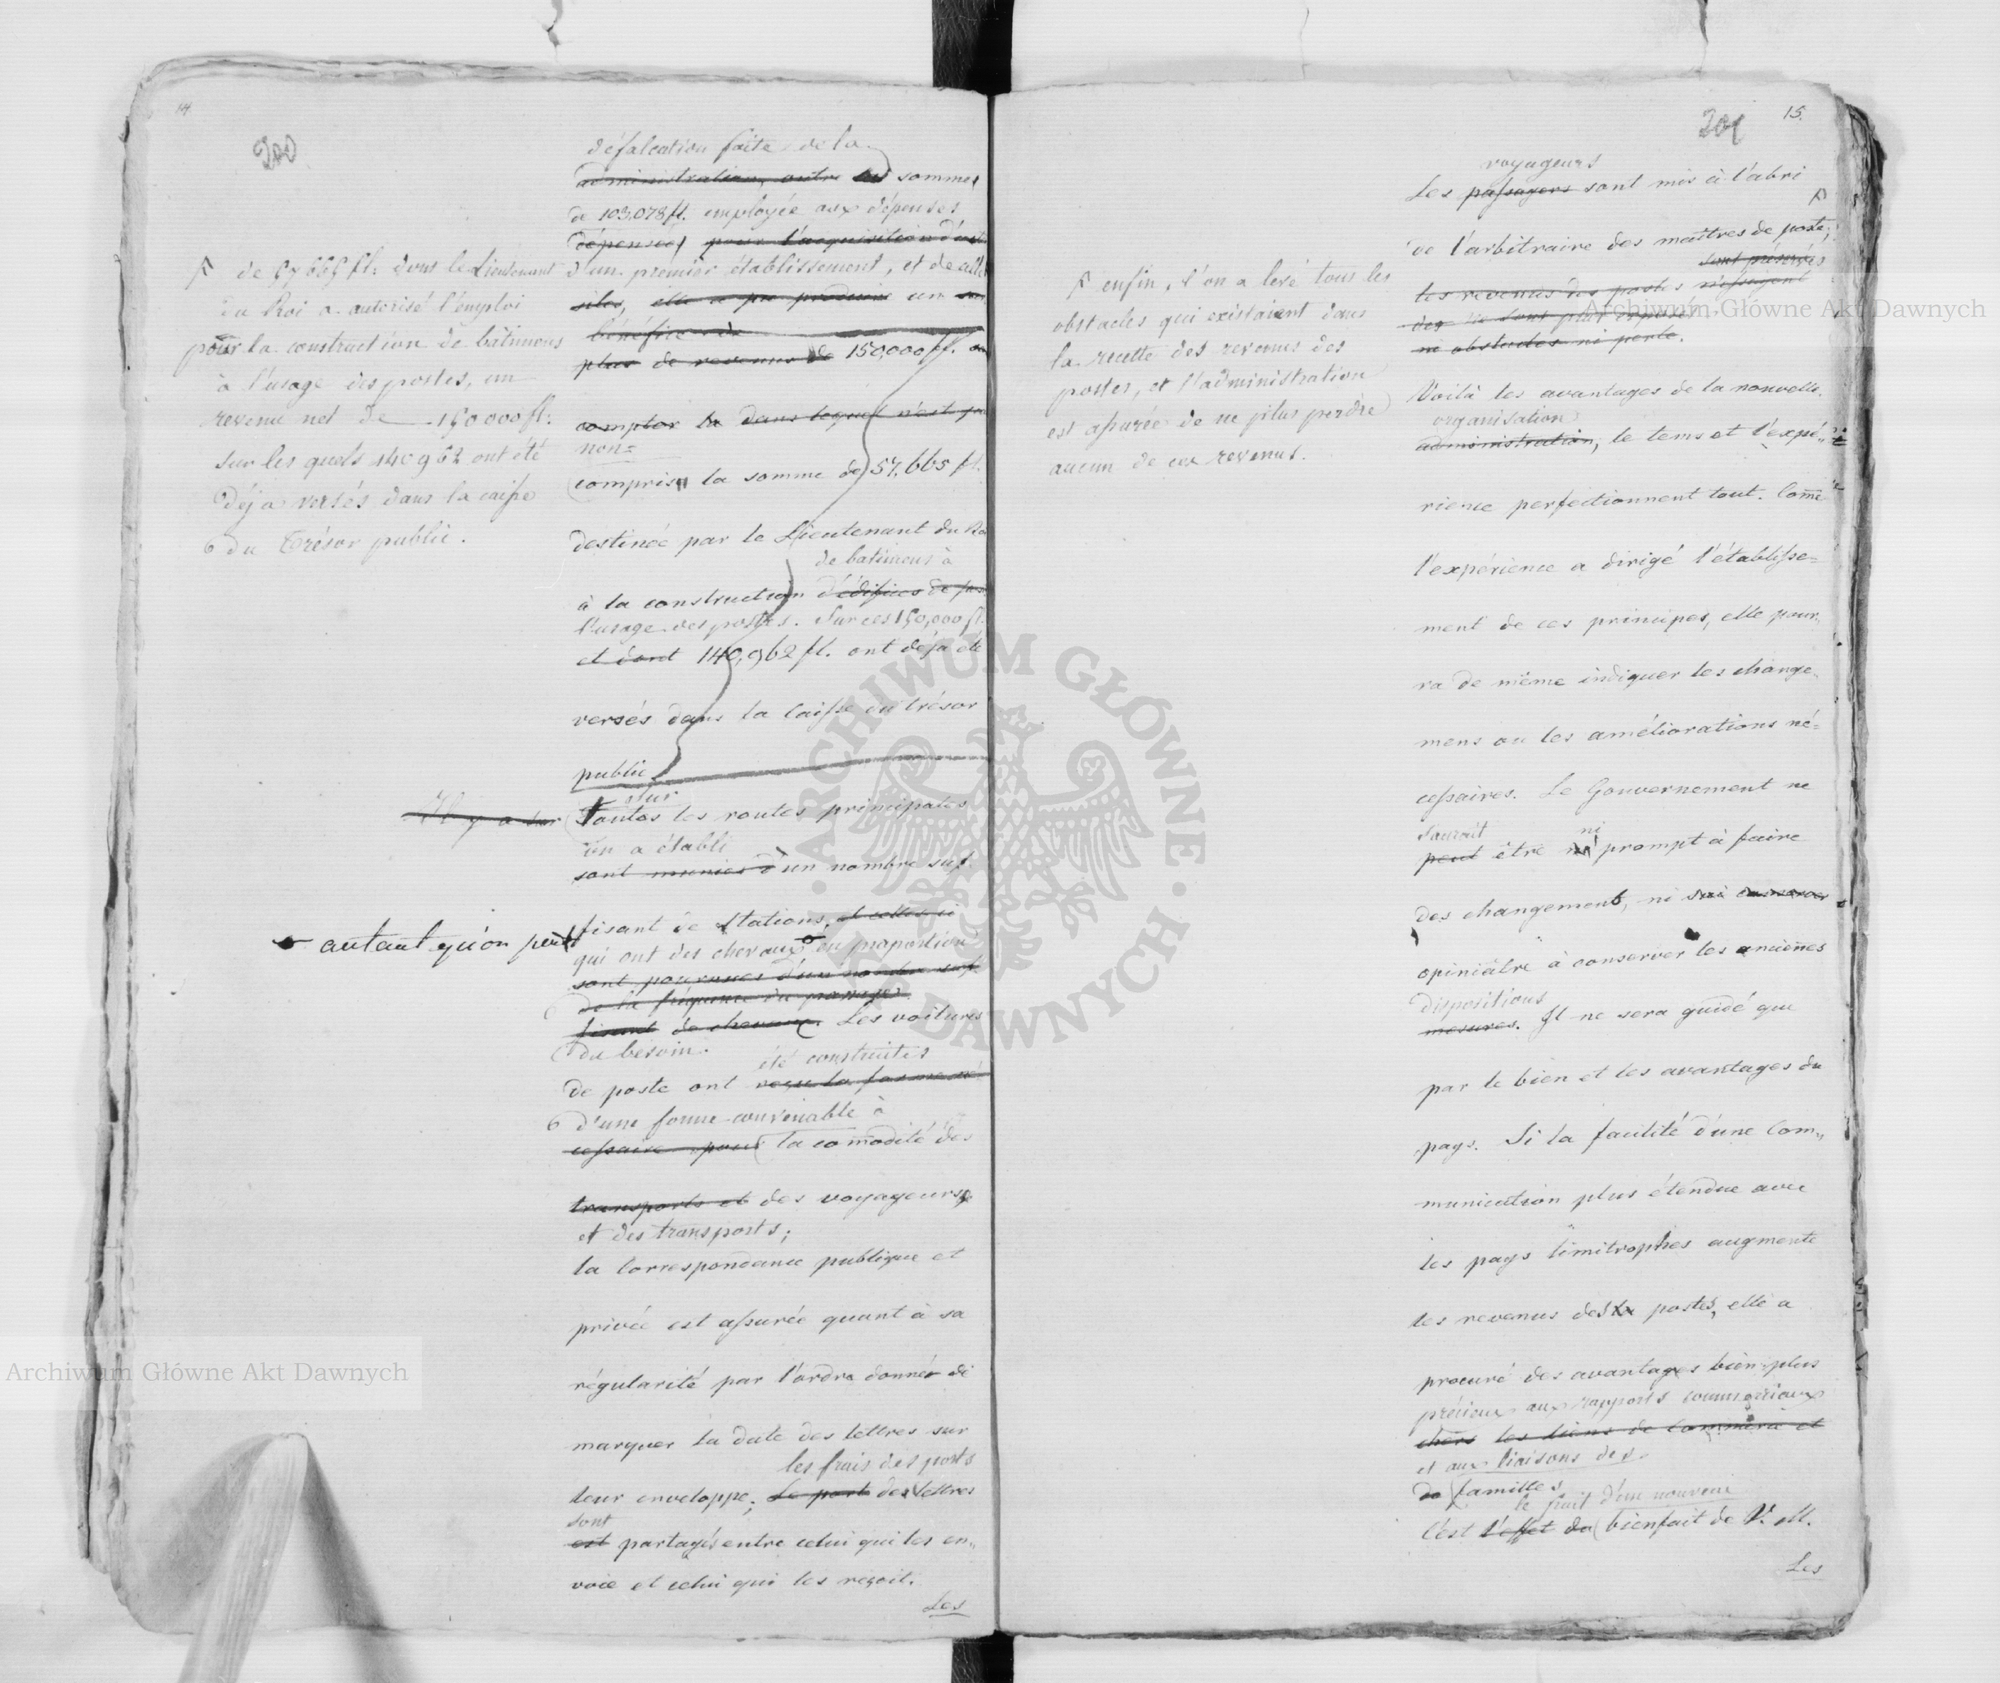 14.
200
défalcation faite de la
administration, outre la somme
de 103,078 fl. employée aux dépenses
dépensées pour l'acquisition d'us
d'un premier établissement, et de celle
siles, elle a pu produire un
bénéfice de
plus de revenus de 150000 fl. 
compter la dans lequel n'est pas
non=
comprise la somme de 57.665 fl.
destinée par le Lieutenant du Roi
de batimens à
à la construction d'édifices de pos
l'usage des postes. Sur ces 150,000 fl.
et dont 140,962 fl. ont déja été
versés dans la Caisse du trésor
public
de 57665 fl: dont le Lieutenant
du Roi a autorisé l'emploi
pour la construction de bâtimens
à l'usage des postes, un
revenu net de 150000 fl:
sur les quels 140962 ont été
déja versés dans la caisse
du Trésor public.
Il y a sur
sur
Toutes les routes principales
on a établi
sont munies d'un nombre suf
fisant de stations, et celles ci
autant qu'on peut
qui ont des chevaux en proportion
sont pourvues d'un nombre suf
de la fréquence du passage
fisant de chevaux. Les voitures
du besoin.
été construites
de poste ont reçu la forme né
d'une forme convenable à
cessaire pour la comodité des
transports et des voyageurs
et des transports;
la Correspondance publique et
privée est assurée quant à sa
régularité par l'ordre donné de
marquer la date des lettres sur
les frais des ports
leur enveloppe; Le port des lettres
sont
est partagés entre celui qui les en„
voie et celui qui les reçoit.
Les
15.
201
voyageurs
Les passagers sont mis à l'abri
de l'arbitraire des maîtres de poste;
sont préservés
les revenus des postes n'essuyent
des ne sont plus exposés
ni obstacles ni perte.
enfin, l'on a levé tous les
obstacles qui existaient dans
la recette des revenus des
postes, et l'administration
est assurée de ne plus perdre
aucun de ces revenus.
Voilà les avantages de la nouvelle
organisation
administration, le tems et l'expé„
rience perfectionnent tout. Come
l'expérience a dirigé l'établisse=
ment de ces principes, elle pour„
ra de même indiquer les change„
mens ou les améliorations né=
cessaires. Le Gouvernement ne
saurait ni
peut être ni prompt à faire
des changemens, ni
opiniâtre à conserver les anciènes
dispositions
mesures. Il ne sera guidé que
par le bien et les avantages du
pays. Si la facilité d'une Com„
munication plus étendue avec
les pays limitrophes augmente
les revenus des postes, elle a
procuré des avantages bien plus
précieux aux rapports commerciaux
chers les liens de Commerce et
et aux liaisons des
de familles
le fruit d'un nouveau
C'est l'effet du bienfait de V. M.
Les
Archiwum Główne Akt Dawnych
Archiwum Główne Akt Dawnych
ARCHIWUM GŁÓWNE AKT DAWNYCH